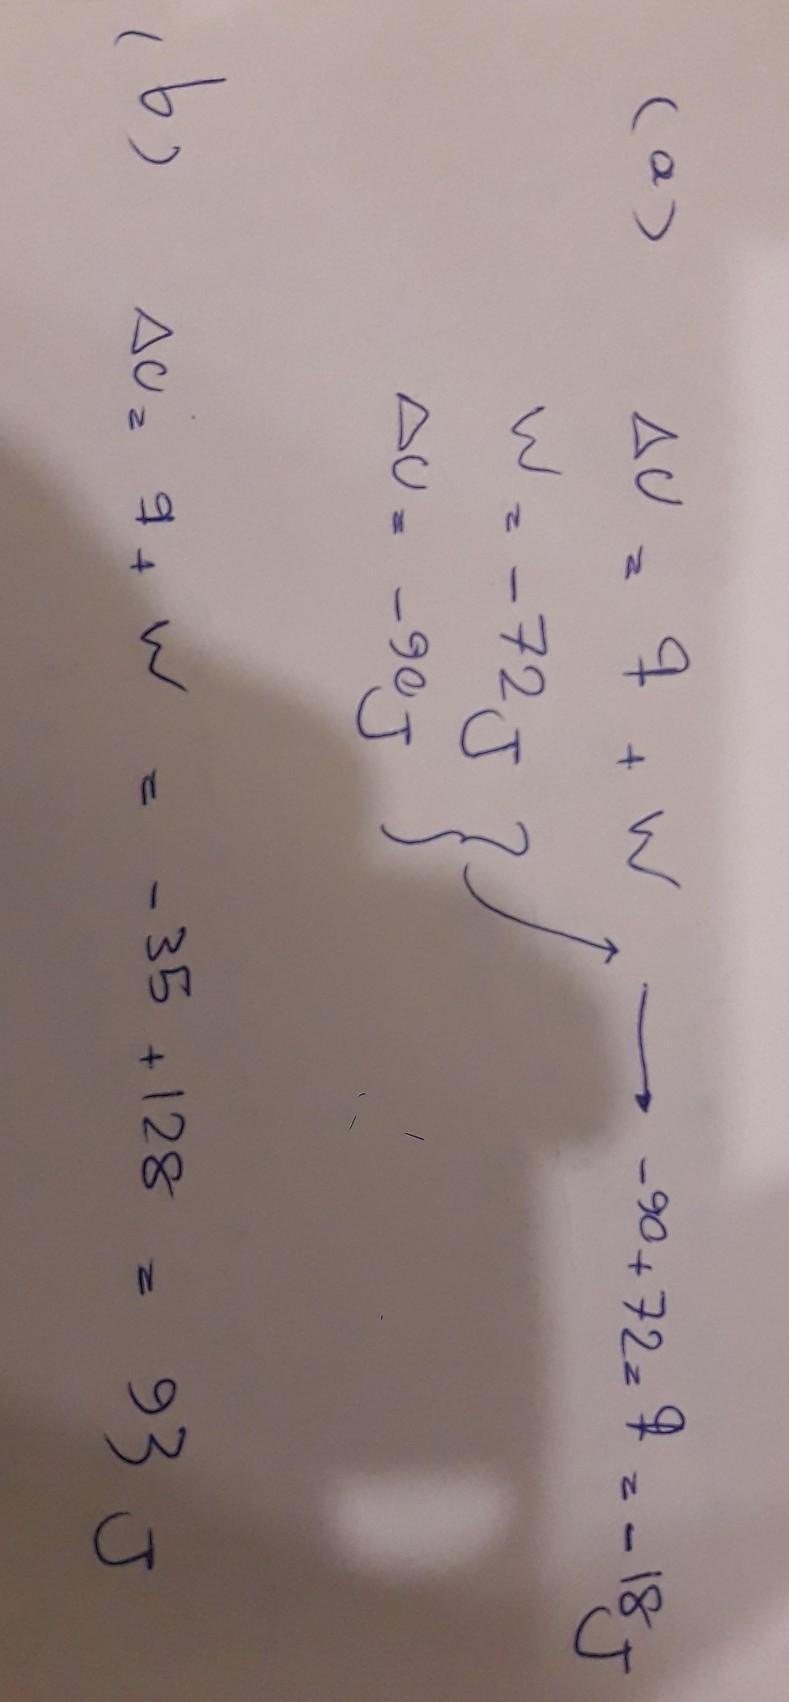 (a) ΔU = q + W → -90 + 72 = q = -18J
W = -72J
ΔU = -90J
(b) ΔU = q + W = -35 + 128 = 93 J